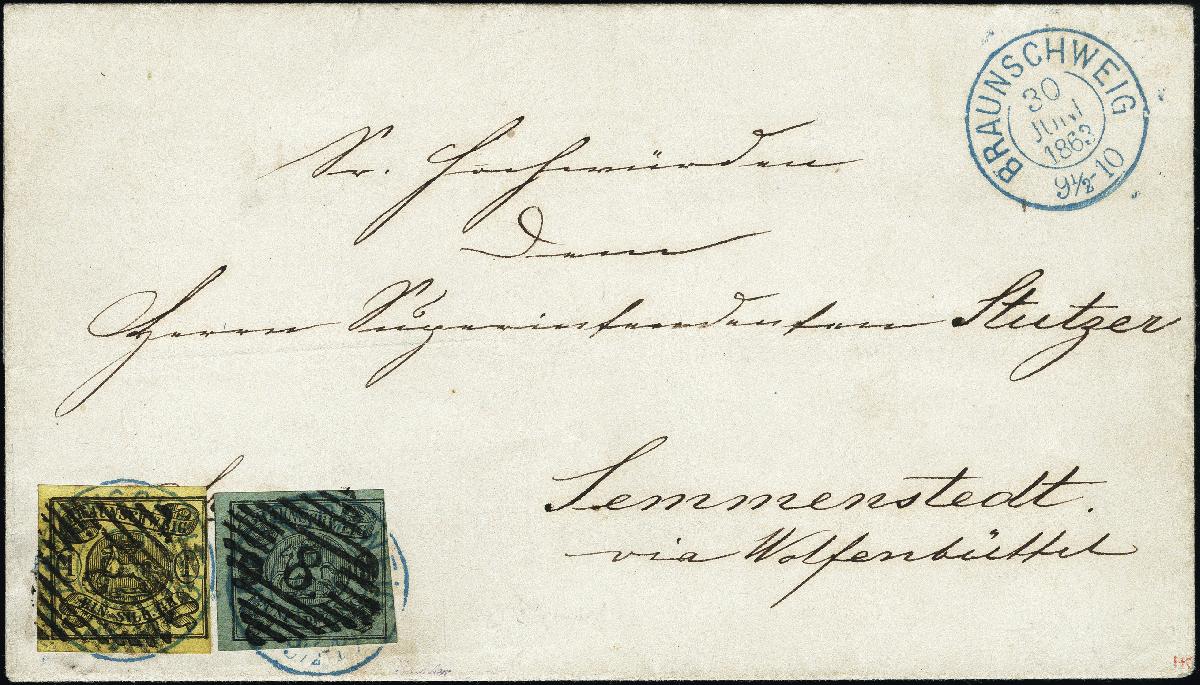 BRAUNSCHWEIG
30
JUNI
1863
9½-10
Sr. Hochwürden
Dem
Herrn Superintendenten Stutzer
Semmenstedt.
via Wolfenbüttel
BRAUNSCHWEIG
EIN SILB. GR.
8